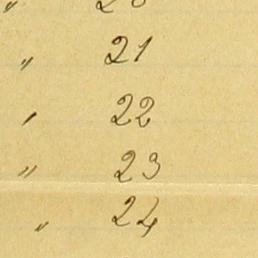 " 20
" 21
' 22
" 23
" 24